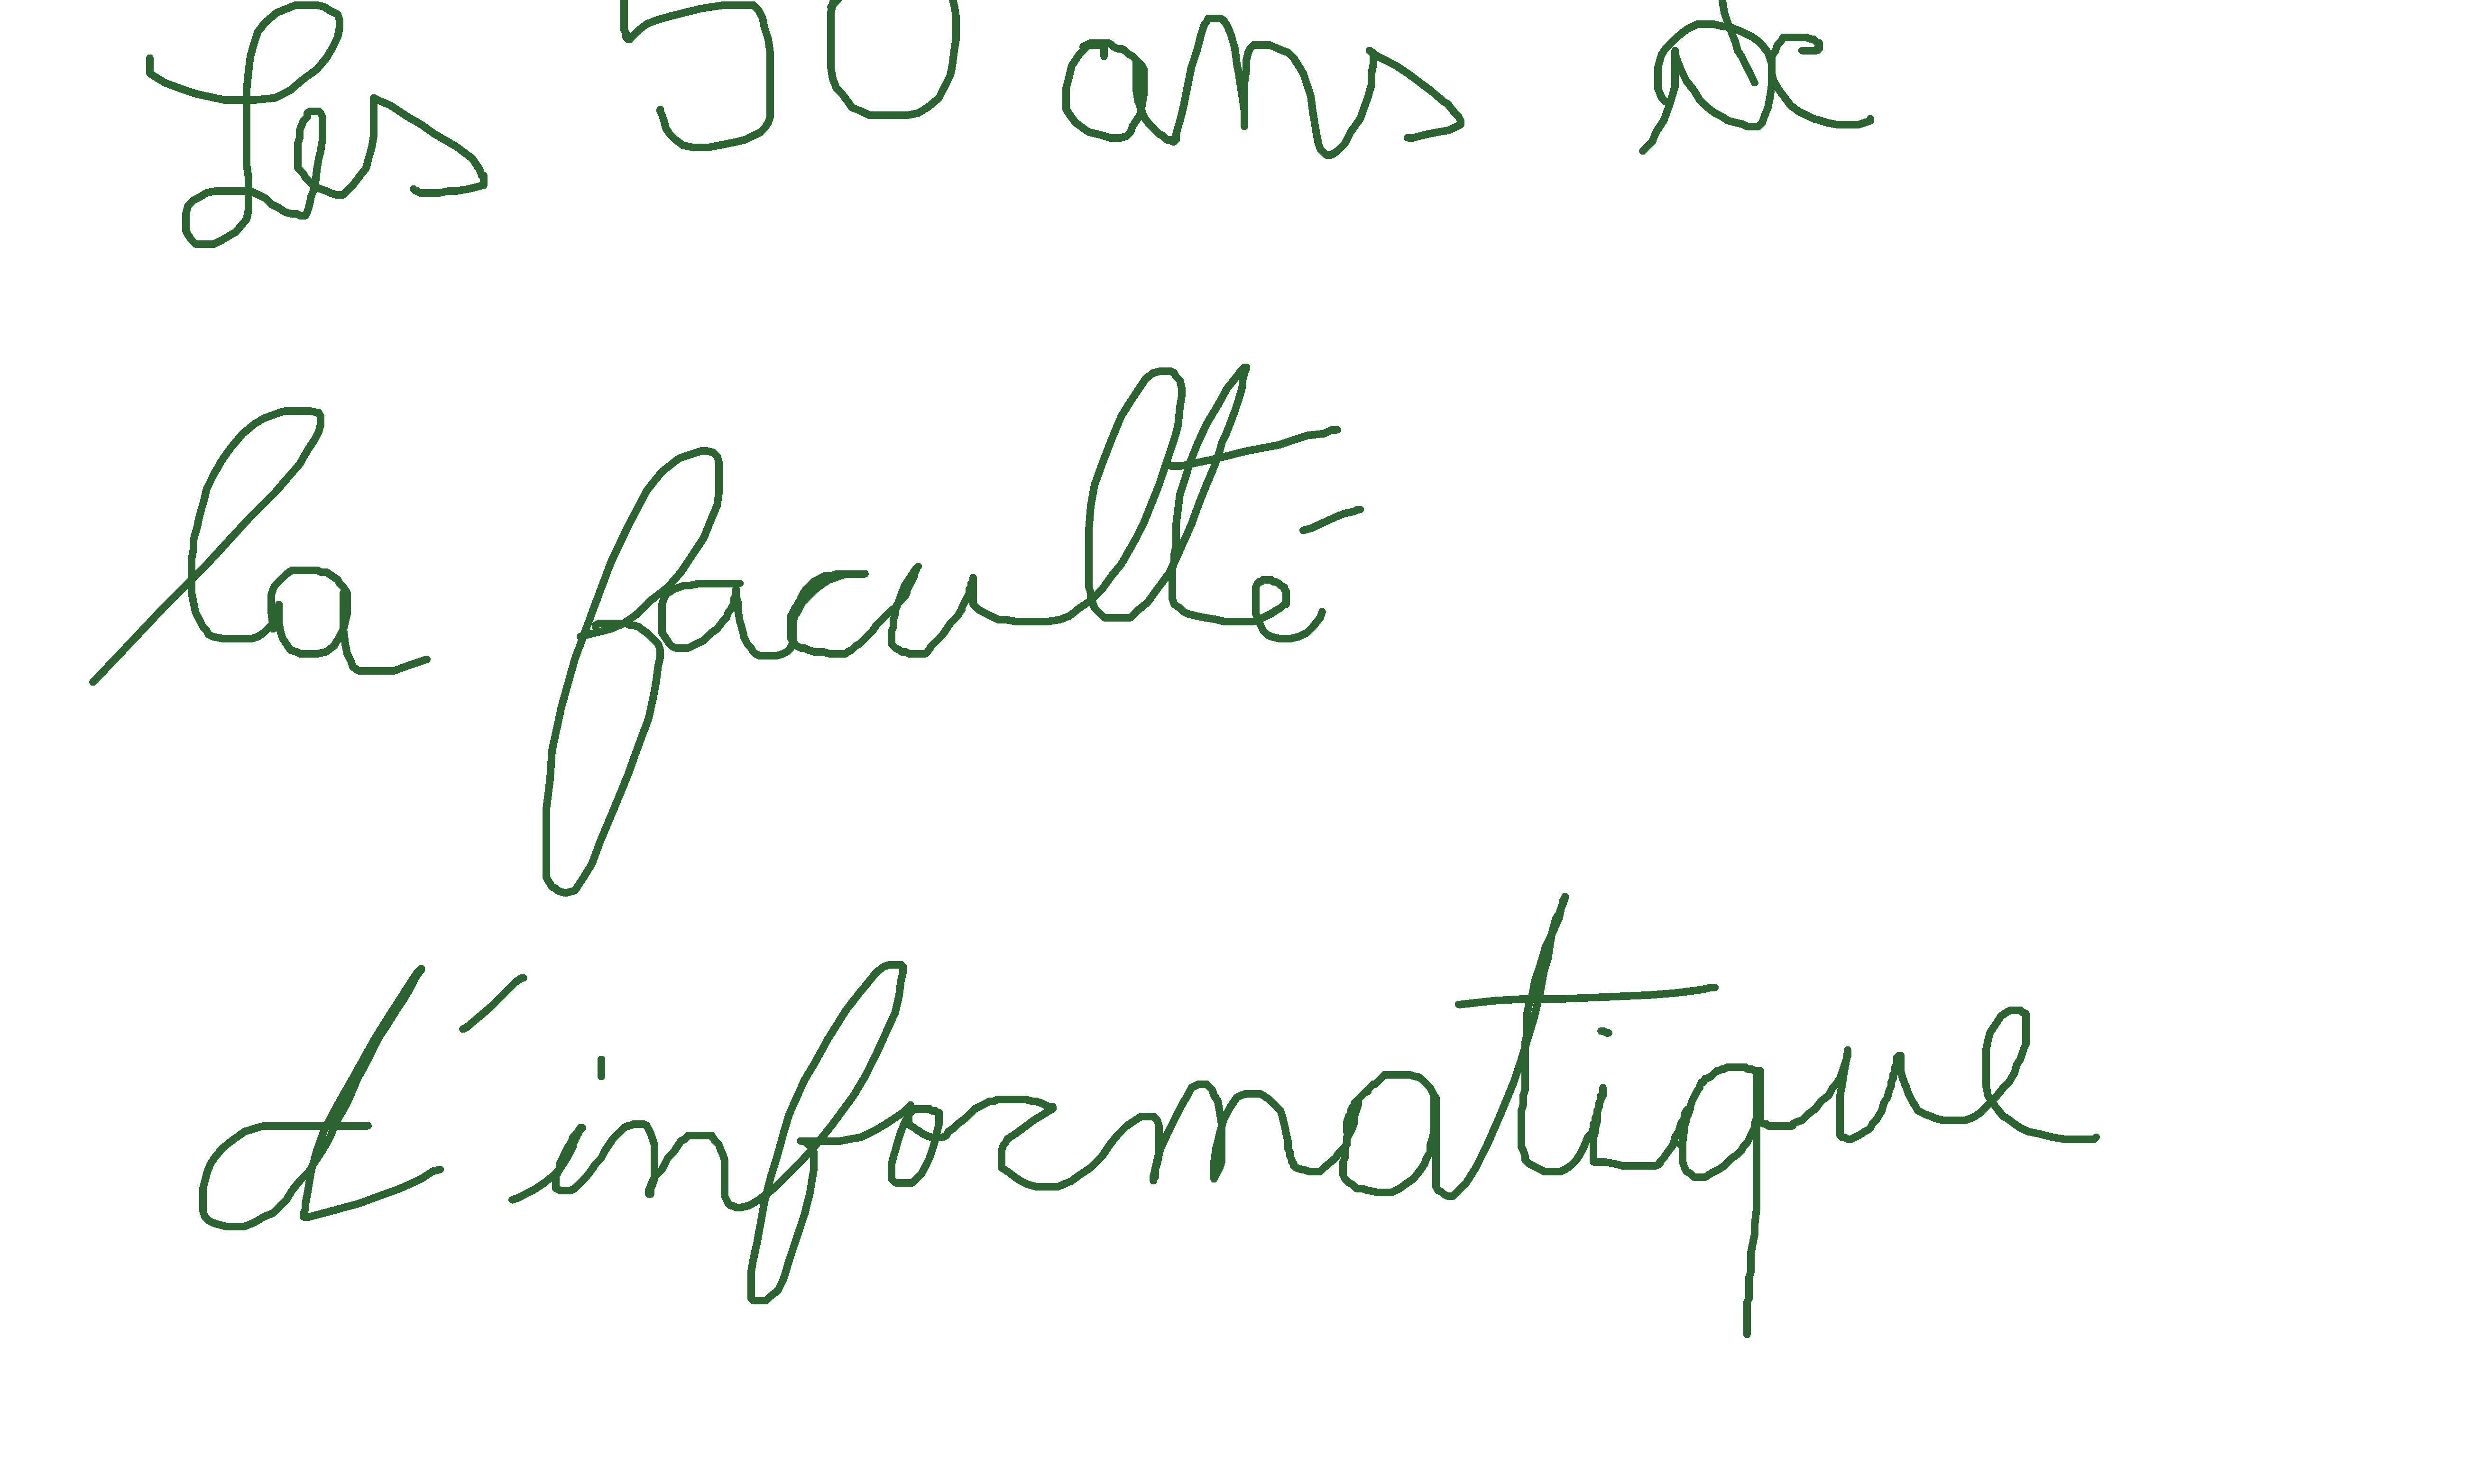 Les 50 ans de
la faculté
d'informatique